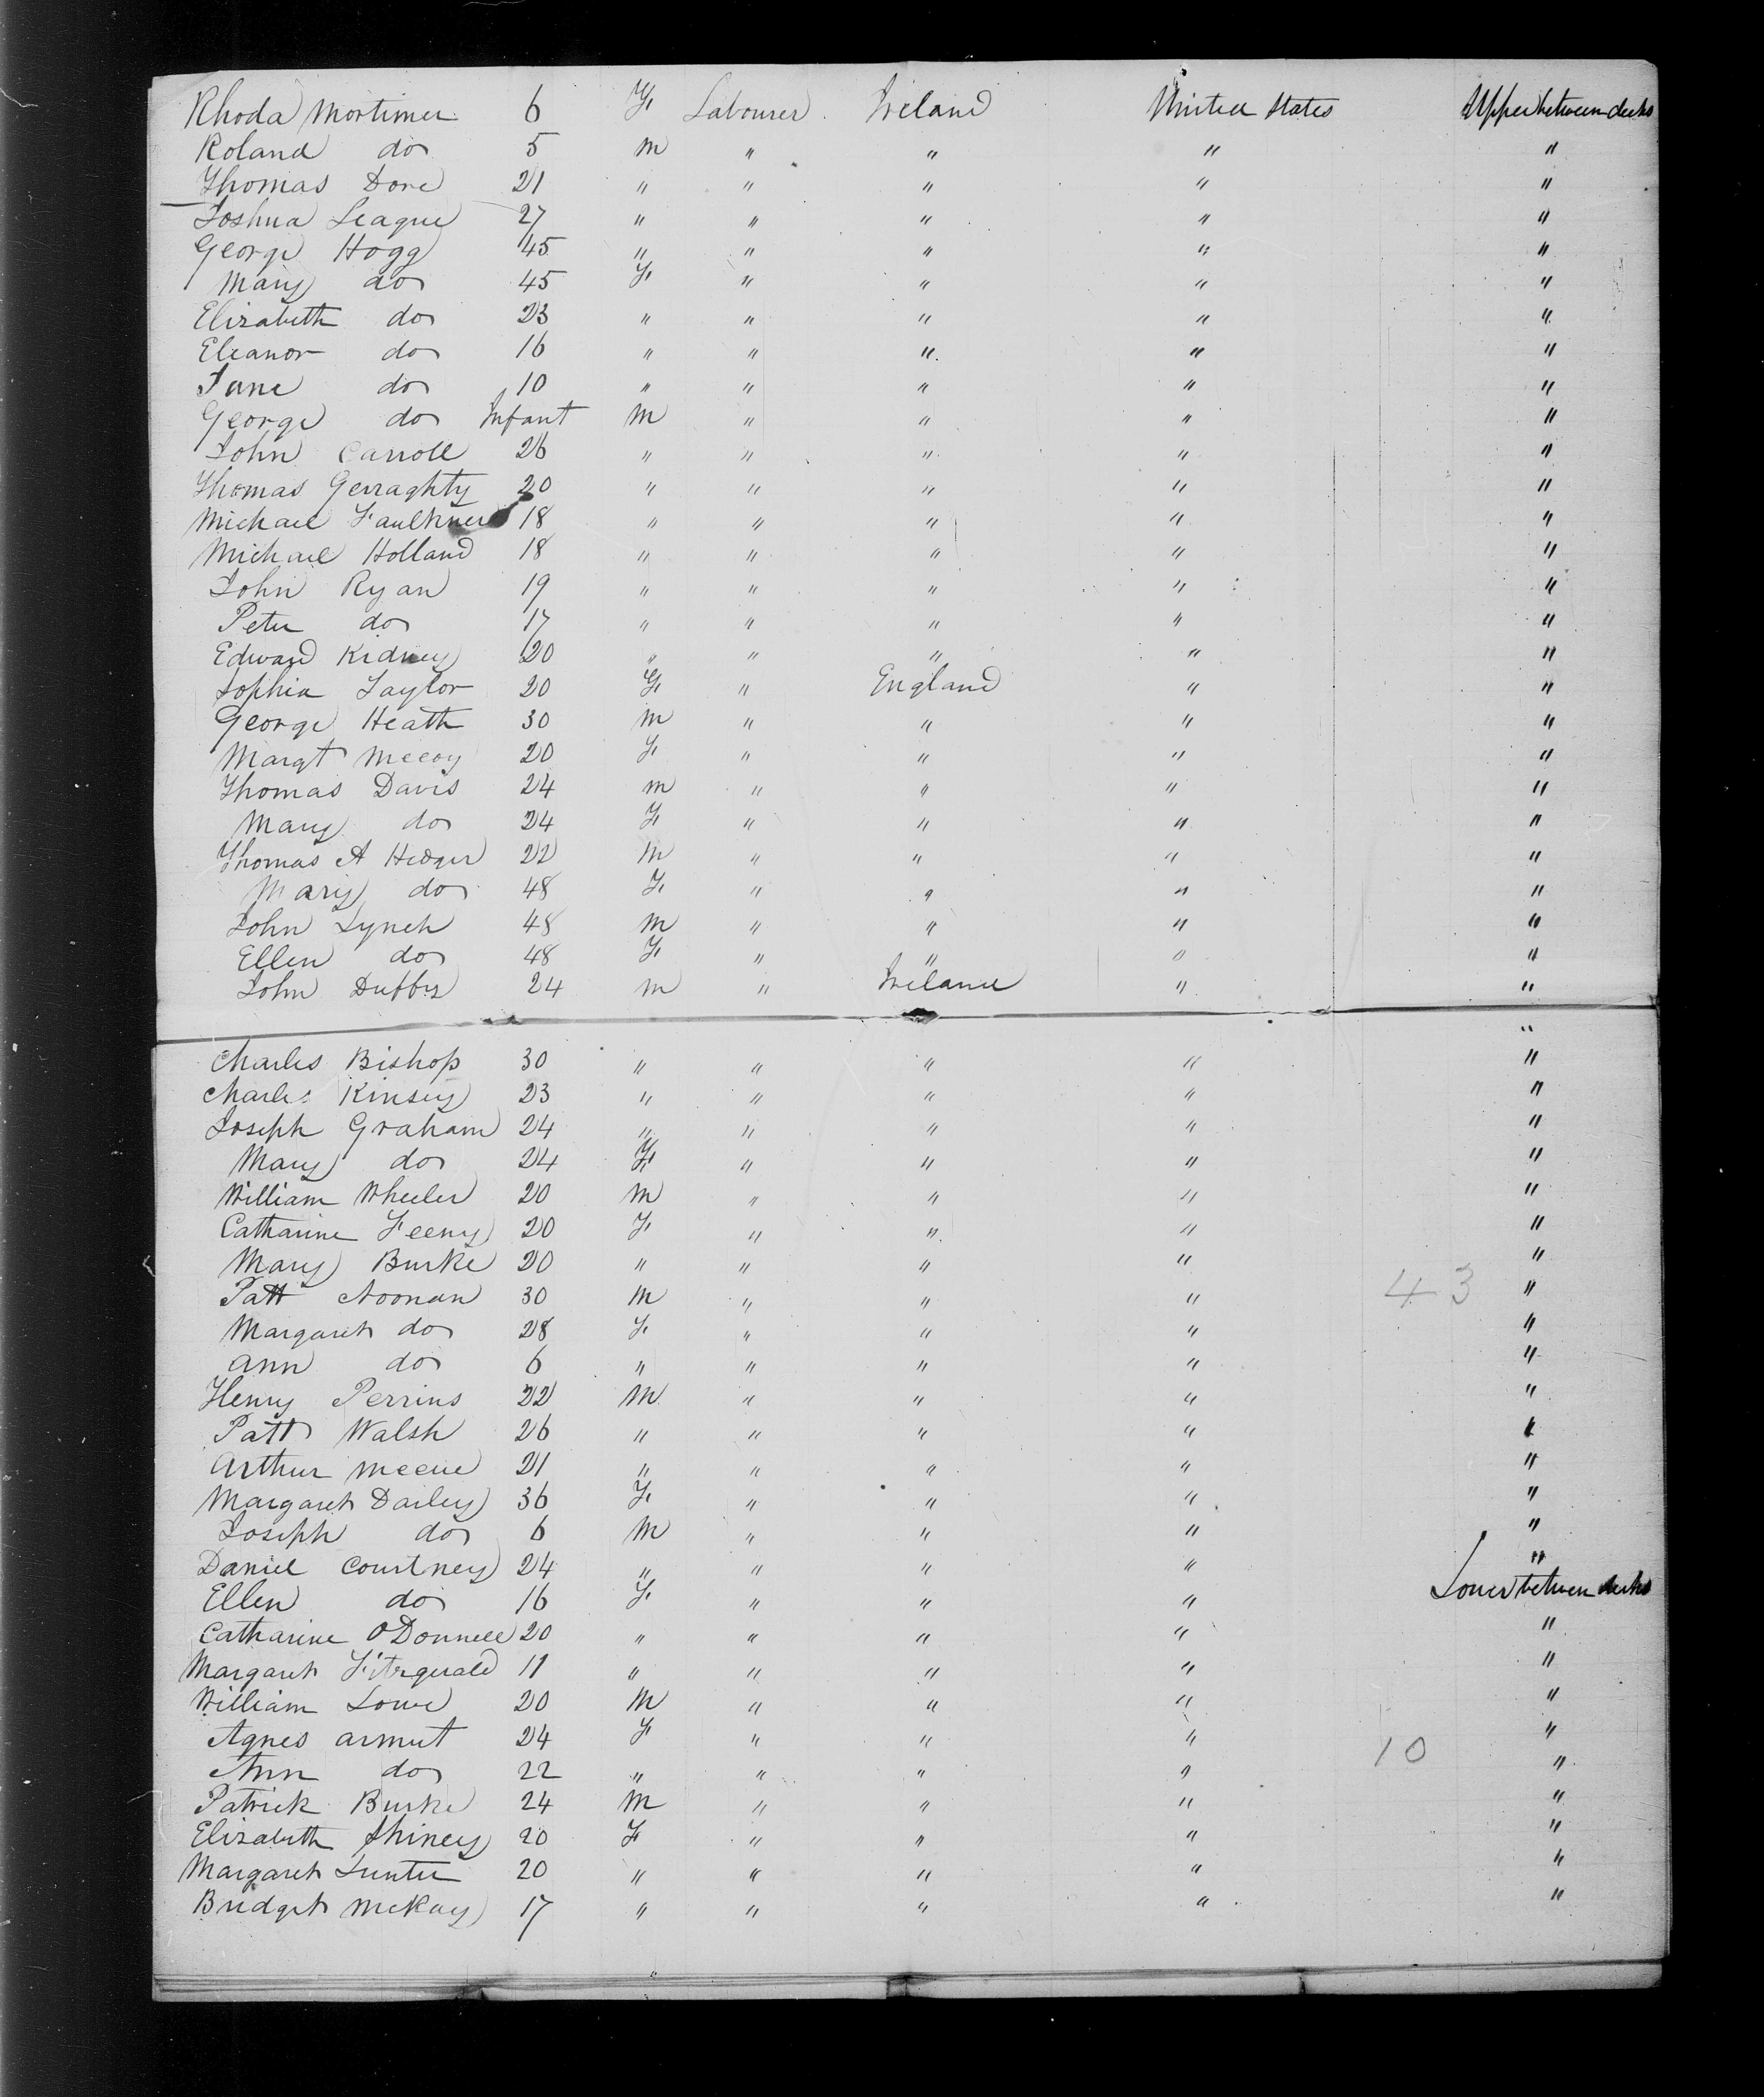 Rhoda Mortimer 6 F. Labourer Ireland United States Upper between decks
Roland do 5 M " " " "
Thomas Dore 21 " " " " "
Joshua League 27 " " " " "
George Hogg 45 " " " " "
Mary do 45 F. " " " "
Elizabeth do 23 " " " " "
Eleanor do 16 " " " " "
Jane do 10 " " " " "
George do Infant M " " " "
John Carroll 26 " " " " "
Thomas Gerraghty 20 " " " " "
Michael Faulkner 18 " " " " "
Michael Holland 18 " " " " "
John Ryan 19 " " " " "
Peter do 17 " " " " "
Edward Kidney 20 " " " " "
Sophia Taylor 20 F. " England " "
George Heath 30 M " " " "
Margt McCoy 20 F. " " " "
Thomas Davis 24 M " " " "
Mary do 24 F. " " " "
Thomas A Hedger 22 M " " " "
Mary do 48 F. " " " "
John Lynch 48 M " " " "
Ellen do 48 F. " " " "
John Duffy 24 M " Ireland " "
"
Charles Bishop 30 " " " " "
Charles Kinsey 23 " " " " "
Joseph Graham 24 " " " " "
Mary do 24 F. " " " "
William Wheeler 20 M " " " "
Catharine Feeny 20 F. " " " "
Mary Burke 20 " " " " "
Patt Noonan 30 M " " " 43 "
Margaret do 28 F. " " " "
Ann do 6 " " " " "
Henry Perrins 22 M " " " "
Patt Walsh 26 " " " " "
Arthur McCue 21 " " " " "
Margaret Dailey 36 F. " " " "
Joseph do 6 M " " " "
Daniel Courtney 24 " " " " "
Ellen do 16 F. " " " Lower between decks
Catharine O'Donnell 20 " " " " "
Margaret Fitzgerald 11 " " " " "
William Lowe 20 M " " " "
Agnes Armut 24 F " " " "
Ann do 22 " " " " 10 "
Patrick Burke 24 M " " " "
Elizabeth Shiney 20 F " " " "
Margaret 20 " " " " "
Bridget McKay 17 " " " " "